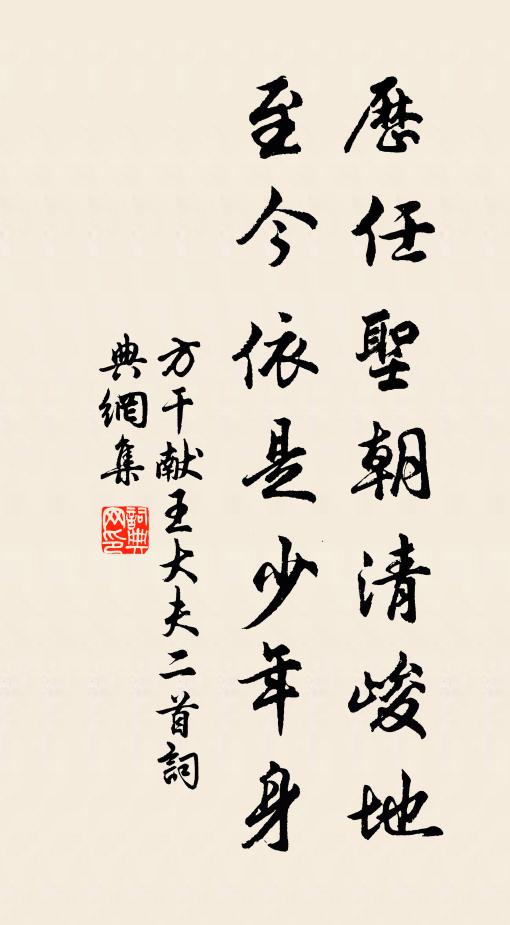 歷任聖朝清峻地
至今依是少年身
方干献王大夫二首詞
典網集
詞典
网印